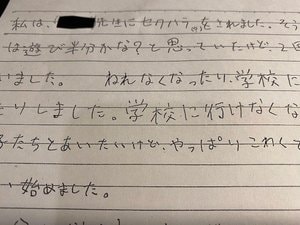 私は、先生にセクハラをされました。そう
は遊び半分かな?と思っていたけど、2回
いました。 われなくなったり、学校に
たりしました。学校に行けなくな
子たちとあいたいけど、やっぱりこわくて
い始めました。